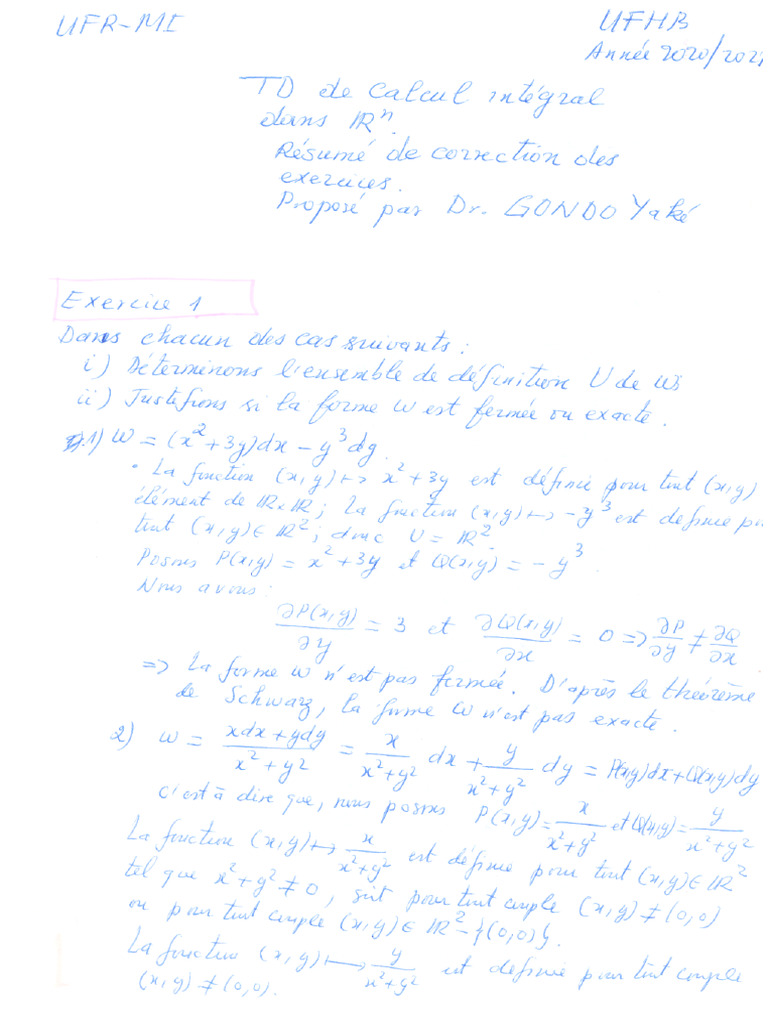 UFR-MI
UFHB
Année 2020/2021
TD de Calcul intégral
dans ℝⁿ.
Résumé de correction des
exercices.
Proposé par Dr. GONDO Yaké
Exercice 1
Dans chacun des cas suivants :
i) Déterminons l'ensemble de définition U de ω;
ii) Justifions si la forme ω est fermée ou exacte.
1) ω = (x² + 3y)dx − y³dy.
• La fonction (x,y) ↦ x² + 3y est définie pour tout (x,y)
élément de ℝ×ℝ ; La fonction (x,y) ↦ −y³ est définie po
tout (x,y) ∈ ℝ² ; donc U = ℝ².
Posons P(x,y) = x² + 3y et Q(x,y) = −y³.
Nous avons :
∂P(x,y)/∂y = 3 et ∂Q(x,y)/∂x = 0 ⇒ ∂P/∂y ≠ ∂Q/∂x
⇒ La forme ω n'est pas fermée. D'après le théorème
de Schwarz, la forme ω n'est pas exacte.
2) ω = (xdx + ydy)/(x² + y²) = x/(x² + y²) dx + y/(x² + y²) dy = P(x,y)dx + Q(x,y)dy
c'est à dire que, nous posons P(x,y) = x/(x² + y²) et Q(x,y) = y/(x² + y²)
La fonction (x,y) ↦ x/(x² + y²) est définie pour tout (x,y) ∈ ℝ²
tel que x² + y² ≠ 0, soit pour tout couple (x,y) ≠ (0,0)
ou pour tout couple (x,y) ∈ ℝ² − {(0,0)}.
La fonction (x,y) ⟼ y/(x² + y²) est définie pour tout couple
(x,y) ≠ (0,0).